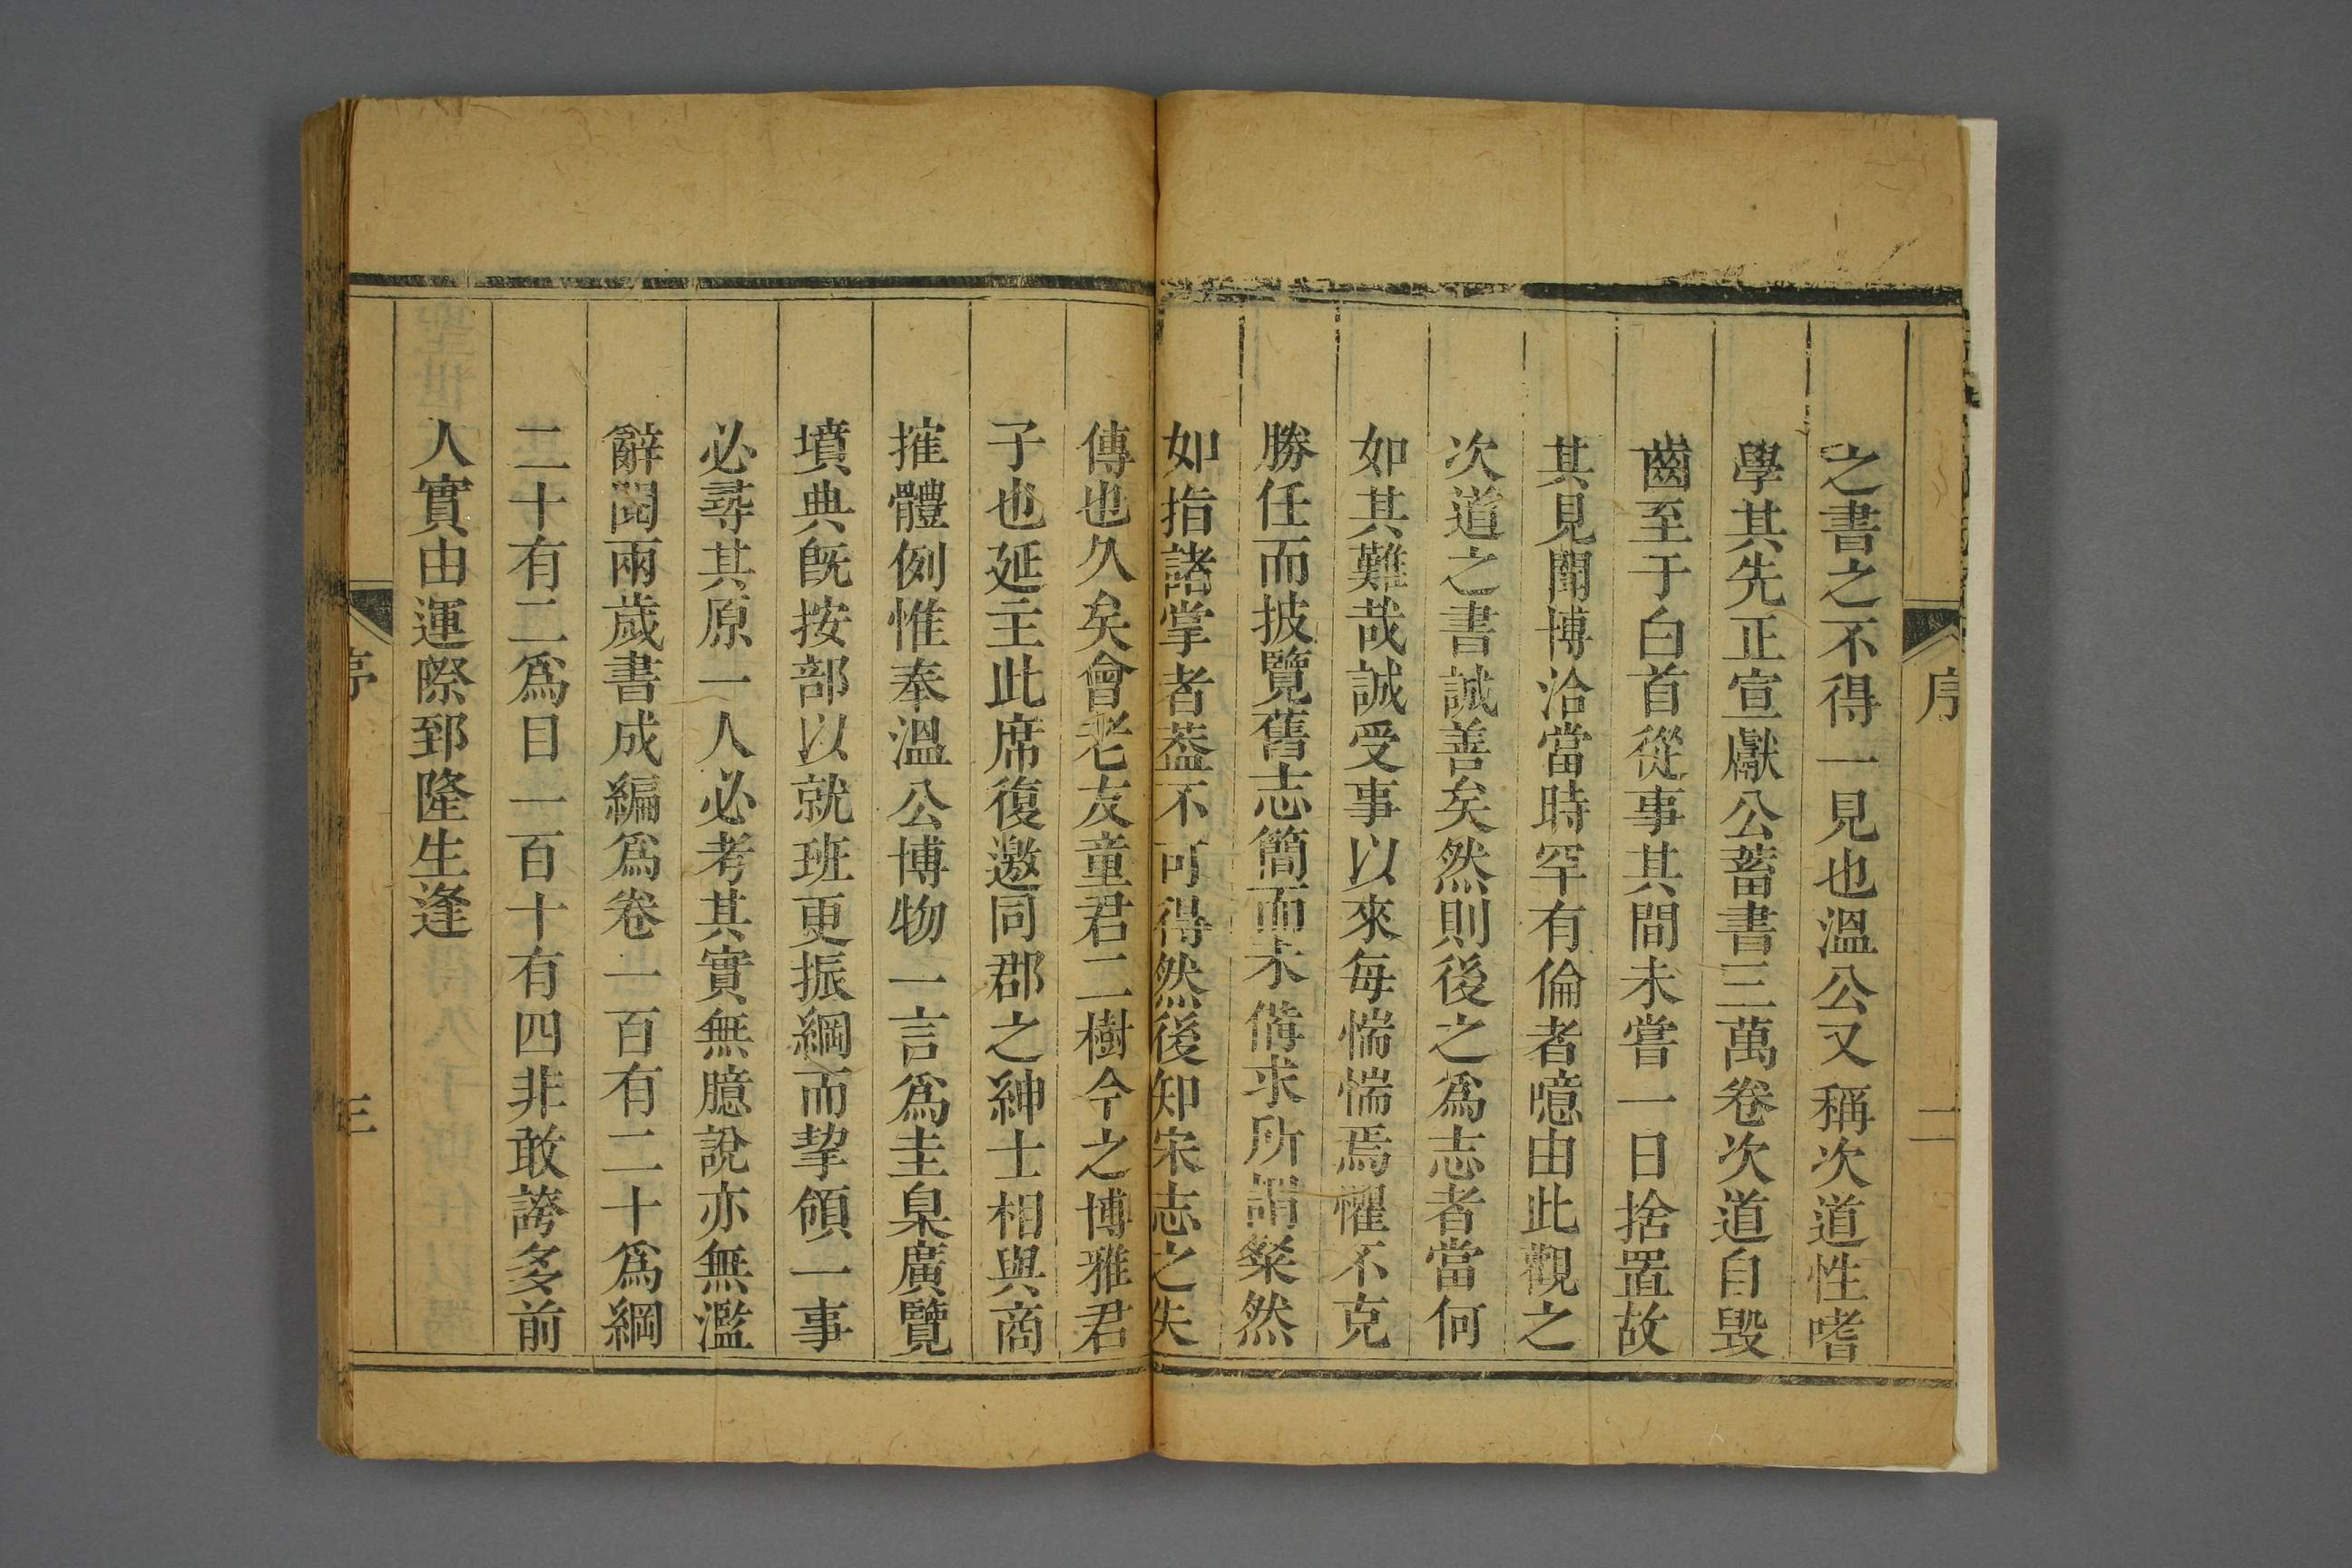 序
二
之書之不得一見也溫公又稱次道性嗜
學其先正宣獻公蓄書三萬卷次道自毀
齒至于白首從事其間未嘗一日捨置故
其見聞博洽當時罕有倫者噫由此觀之
次道之書誠善矣然則後之爲志者當何
如其難哉誠受事以來每惴惴焉懼不克
勝任而披覽舊志簡而未備求所謂粲然
如指諸掌者葢不可得然後知宋志之失
傳也久矣會老友童君二樹今之博雅君
子也延主此席復邀同郡之紳士相與商
搉體例惟奉溫公博物一言爲圭臬廣覽
墳典旣按部以就班更振綱而挈領一事
必尋其原一人必考其實無臆說亦無濫
辭閱兩歲書成編爲卷一百有二十爲綱
二十有二爲目一百十有四非敢誇多前
人實由運際郅隆生逢
序
三